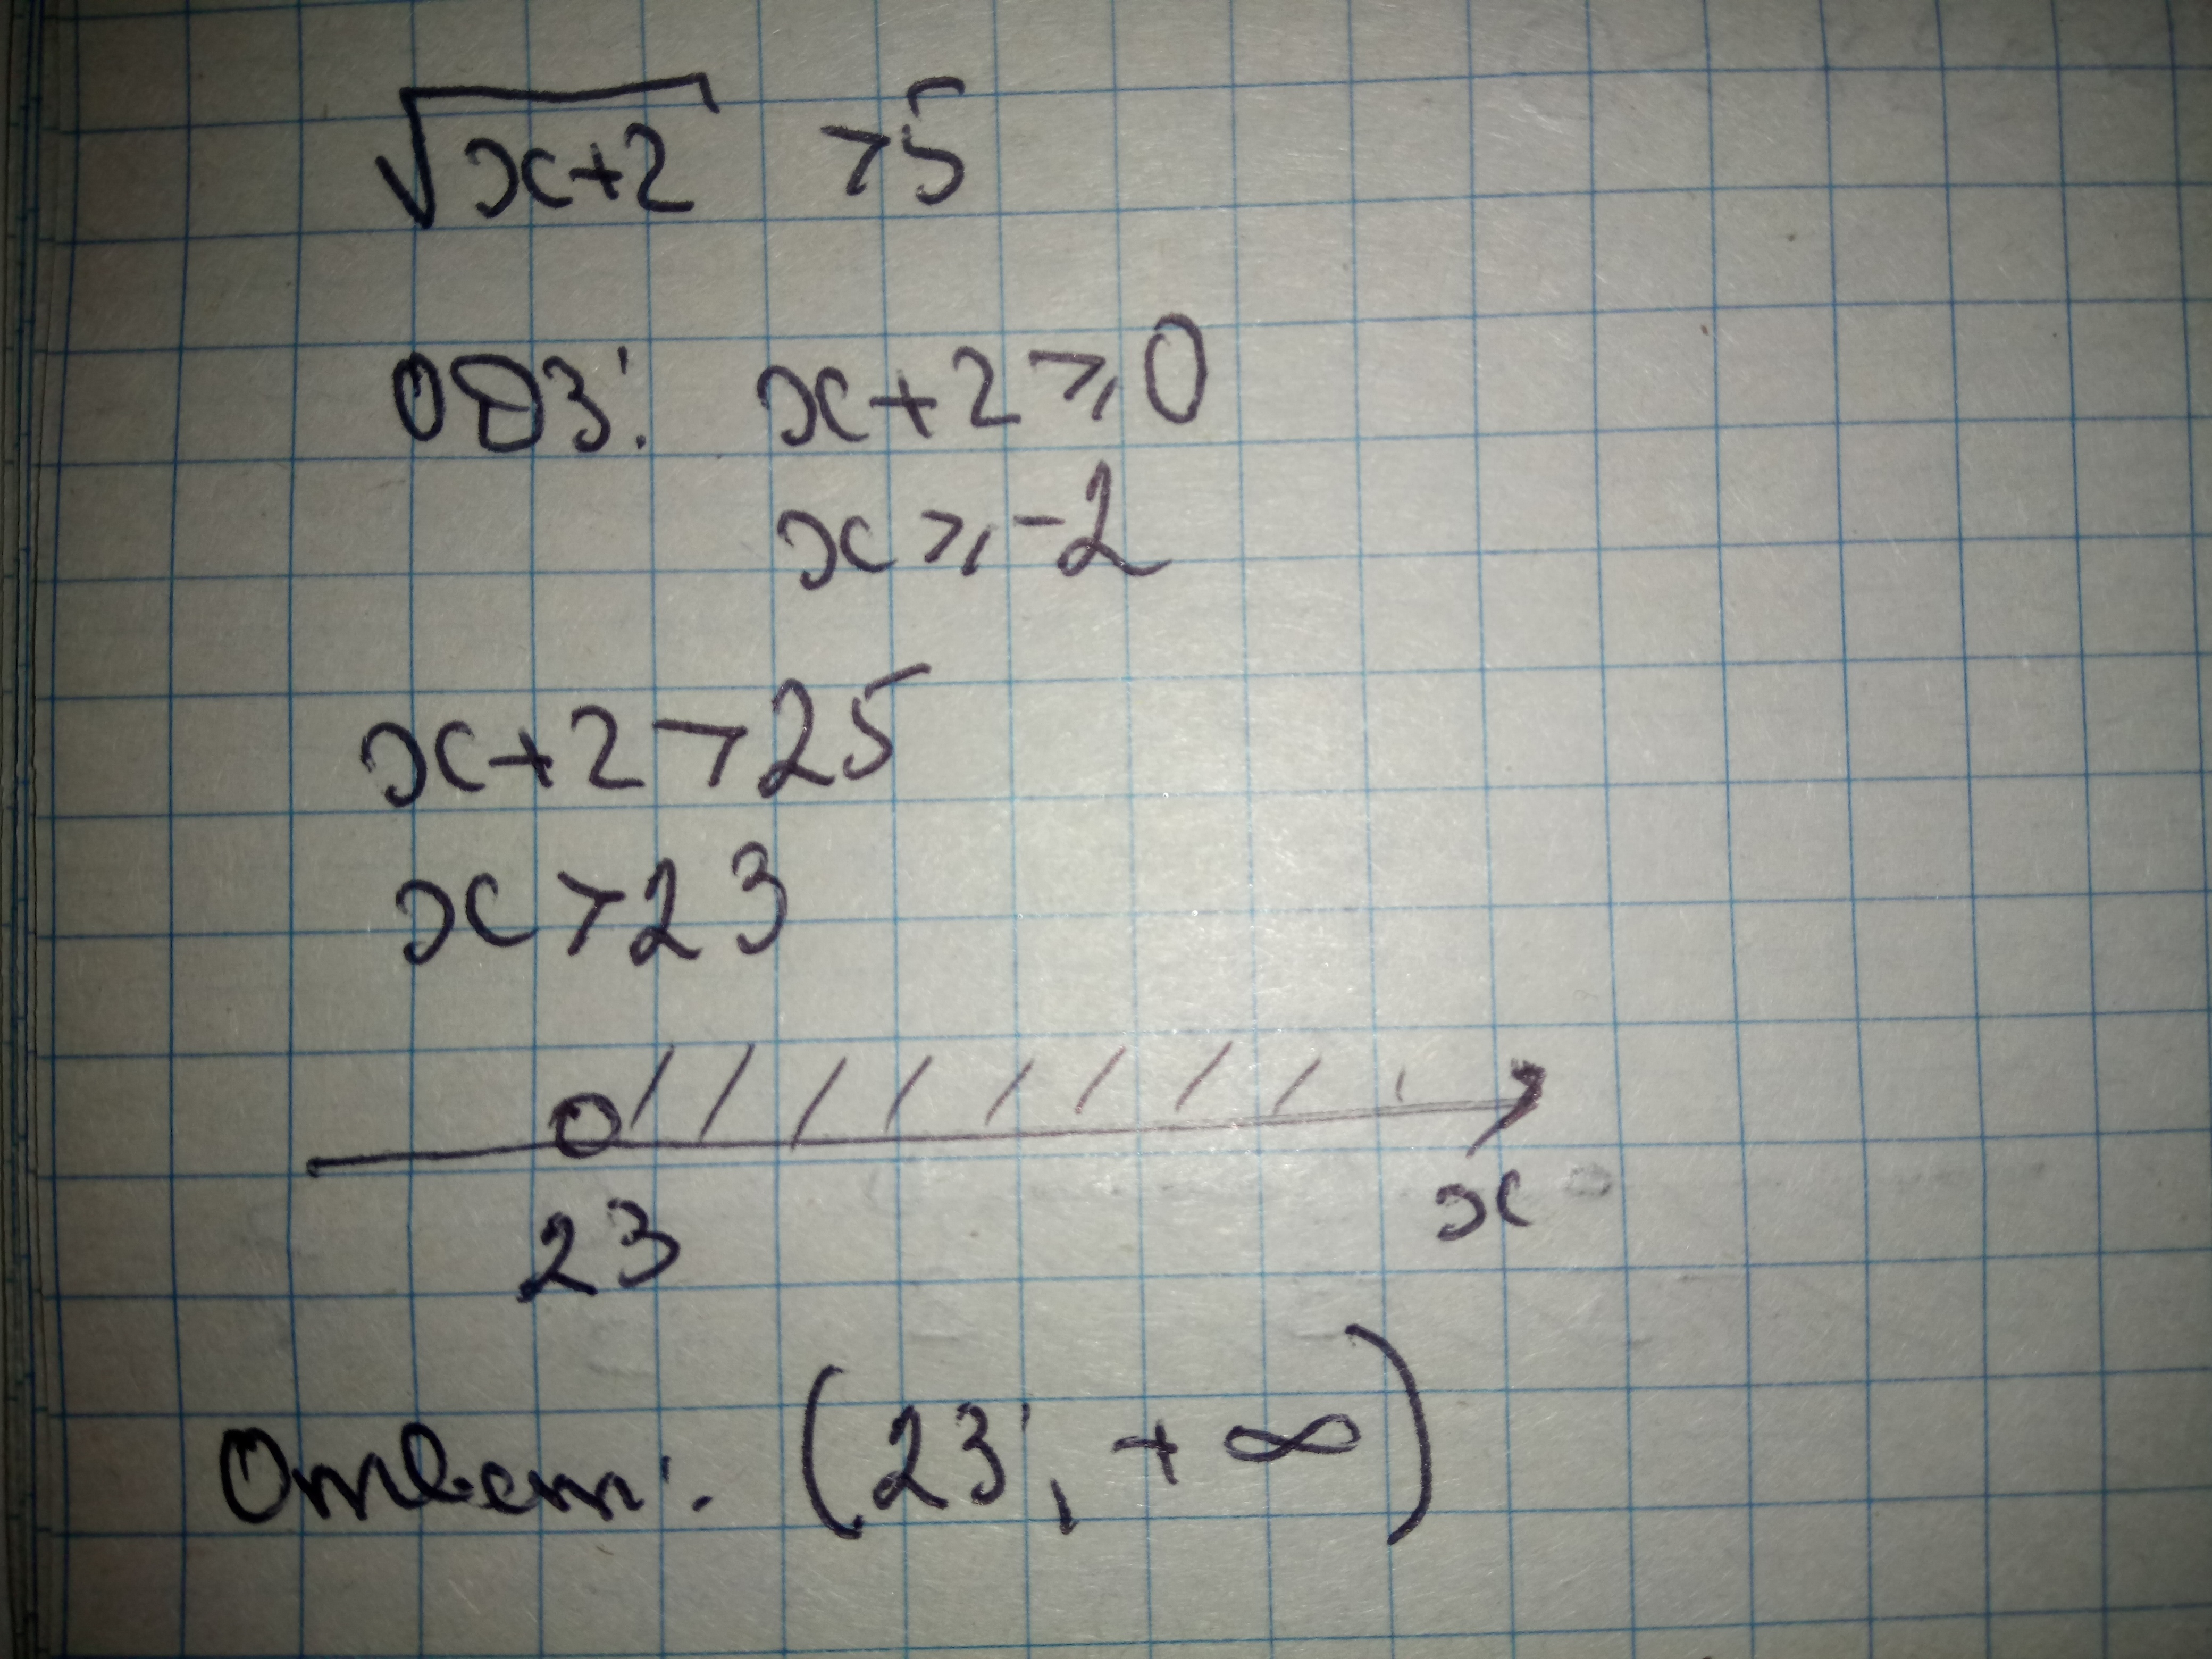 √x+2 >5
ОДЗ: x+2⩾0
x⩾-2
x+2>25
x>23
23
x
Ответ: (23; +∞)